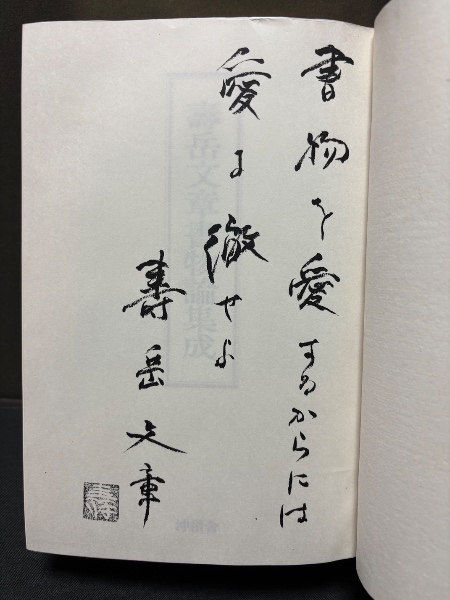 書物を愛するからには
愛に徹せよ
壽岳文章
壽
壽岳文章書物論集成
沖積舎